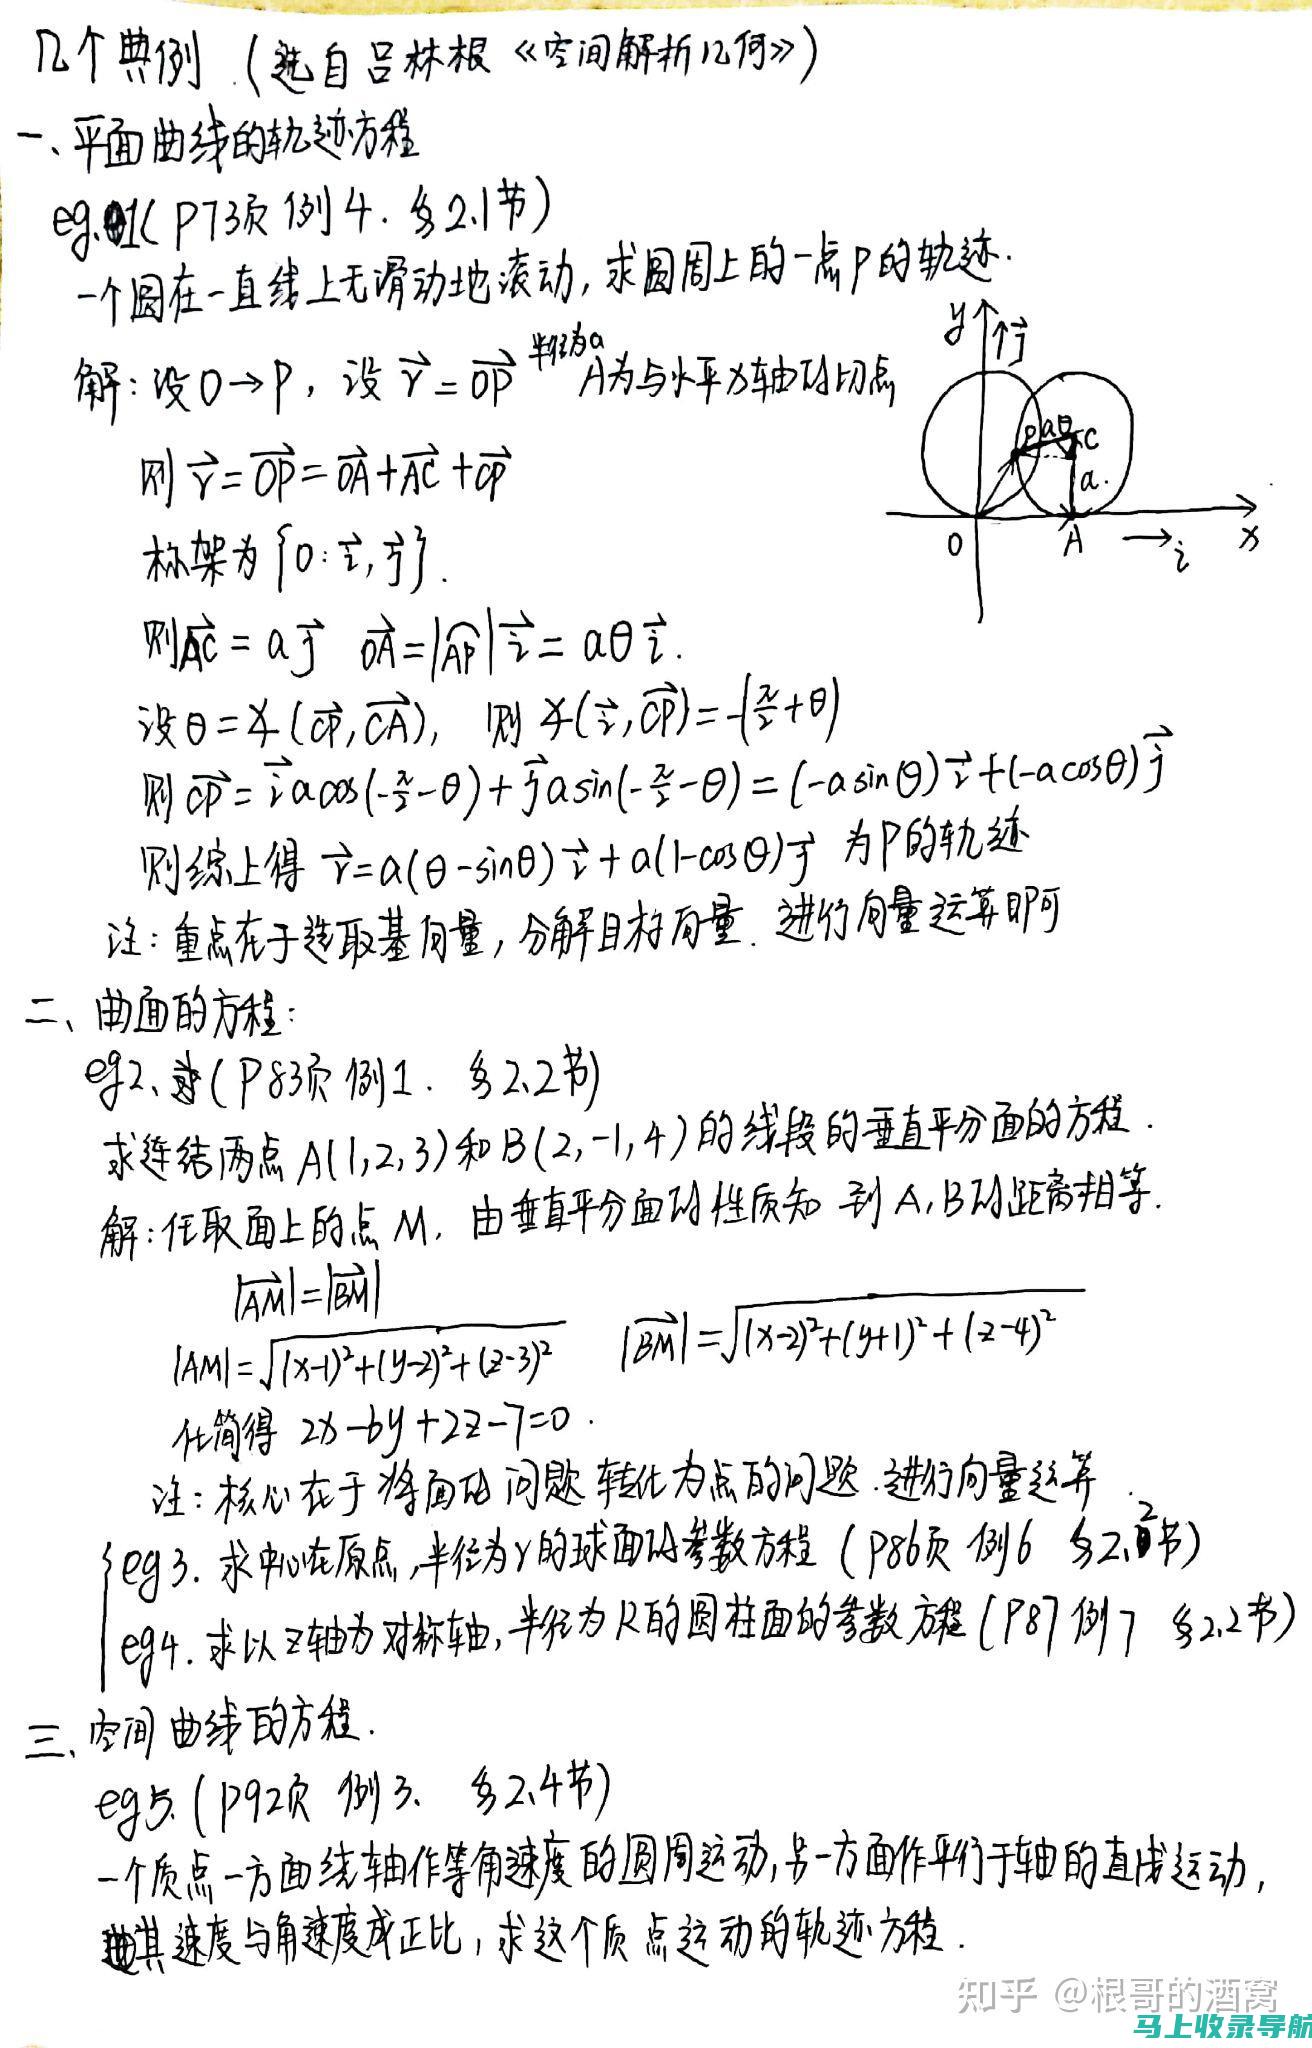 几个典例.(选自吕林根《空间解析几何》)
一、平面曲线的轨迹方程
eg.1(P73页 例4. §2.1节)
一个圆在一直线上无滑动地滚动,求圆周上的一点P的轨迹.
解:设O→P,设 r⃗=OP⃗ 半径为a A为与水平x轴的切点
y j⃗
P aθ C
a.
O A i⃗ x
则 r⃗=OP⃗=OA⃗+AC⃗+CP⃗
标架为{O:i⃗,j⃗}.
则AC⃗=aj⃗ OA⃗=|AP⌒|i⃗=aθi⃗.
设θ=∡(CP⃗,CA⃗), 则∡(i⃗,CP⃗)=-(π/2+θ)
则CP⃗=i⃗acos(-π/2-θ)+j⃗asin(-π/2-θ)=(-asinθ)i⃗+(-acosθ)j⃗
则综上得 r⃗=a(θ-sinθ)i⃗+a(1-cosθ)j⃗ 为P的轨迹
注:重点在于选取基向量,分解目标向量.进行向量运算即可
二、曲面的方程:
eg2.(P83页 例1. §2.2节)
求连结两点A(1,2,3)和B(2,-1,4)的线段的垂直平分面的方程.
解:任取面上的点M,由垂直平分面的性质知 到A,B的距离相等.
|AM⃗|=|BM⃗|
|AM|=√((x-1)²+(y-2)²+(z-3)²) |BM⃗|=√((x-2)²+(y+1)²+(z-4)²)
化简得 2x-6y+2z-7=0.
注:核心在于将面的问题转化为点的问题.进行向量运算.
eg3.求中心在原点,半径为r的球面的参数方程(P86页 例6 §2.2节)
eg4.求以z轴为对称轴,半径为R的圆柱面的参数方程(P87 例7 §2.2节)
三、空间曲线的方程.
eg5.(P92页 例3. §2.4节)
一个质点一方面绕轴作等角速度的圆周运动,另一方面作平行于轴的直线运动,
其速度与角速度成正比,求这个质点运动的轨迹方程.
知乎 @根哥的酒窝
马上收录导航